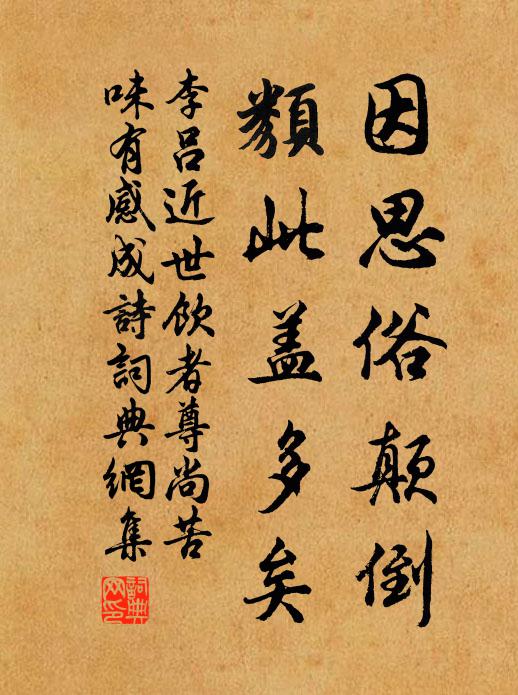 因思俗颠倒
類此盖多矣
李吕近世饮者尊尚苦
味有感成詩詞典網集
詞典网印